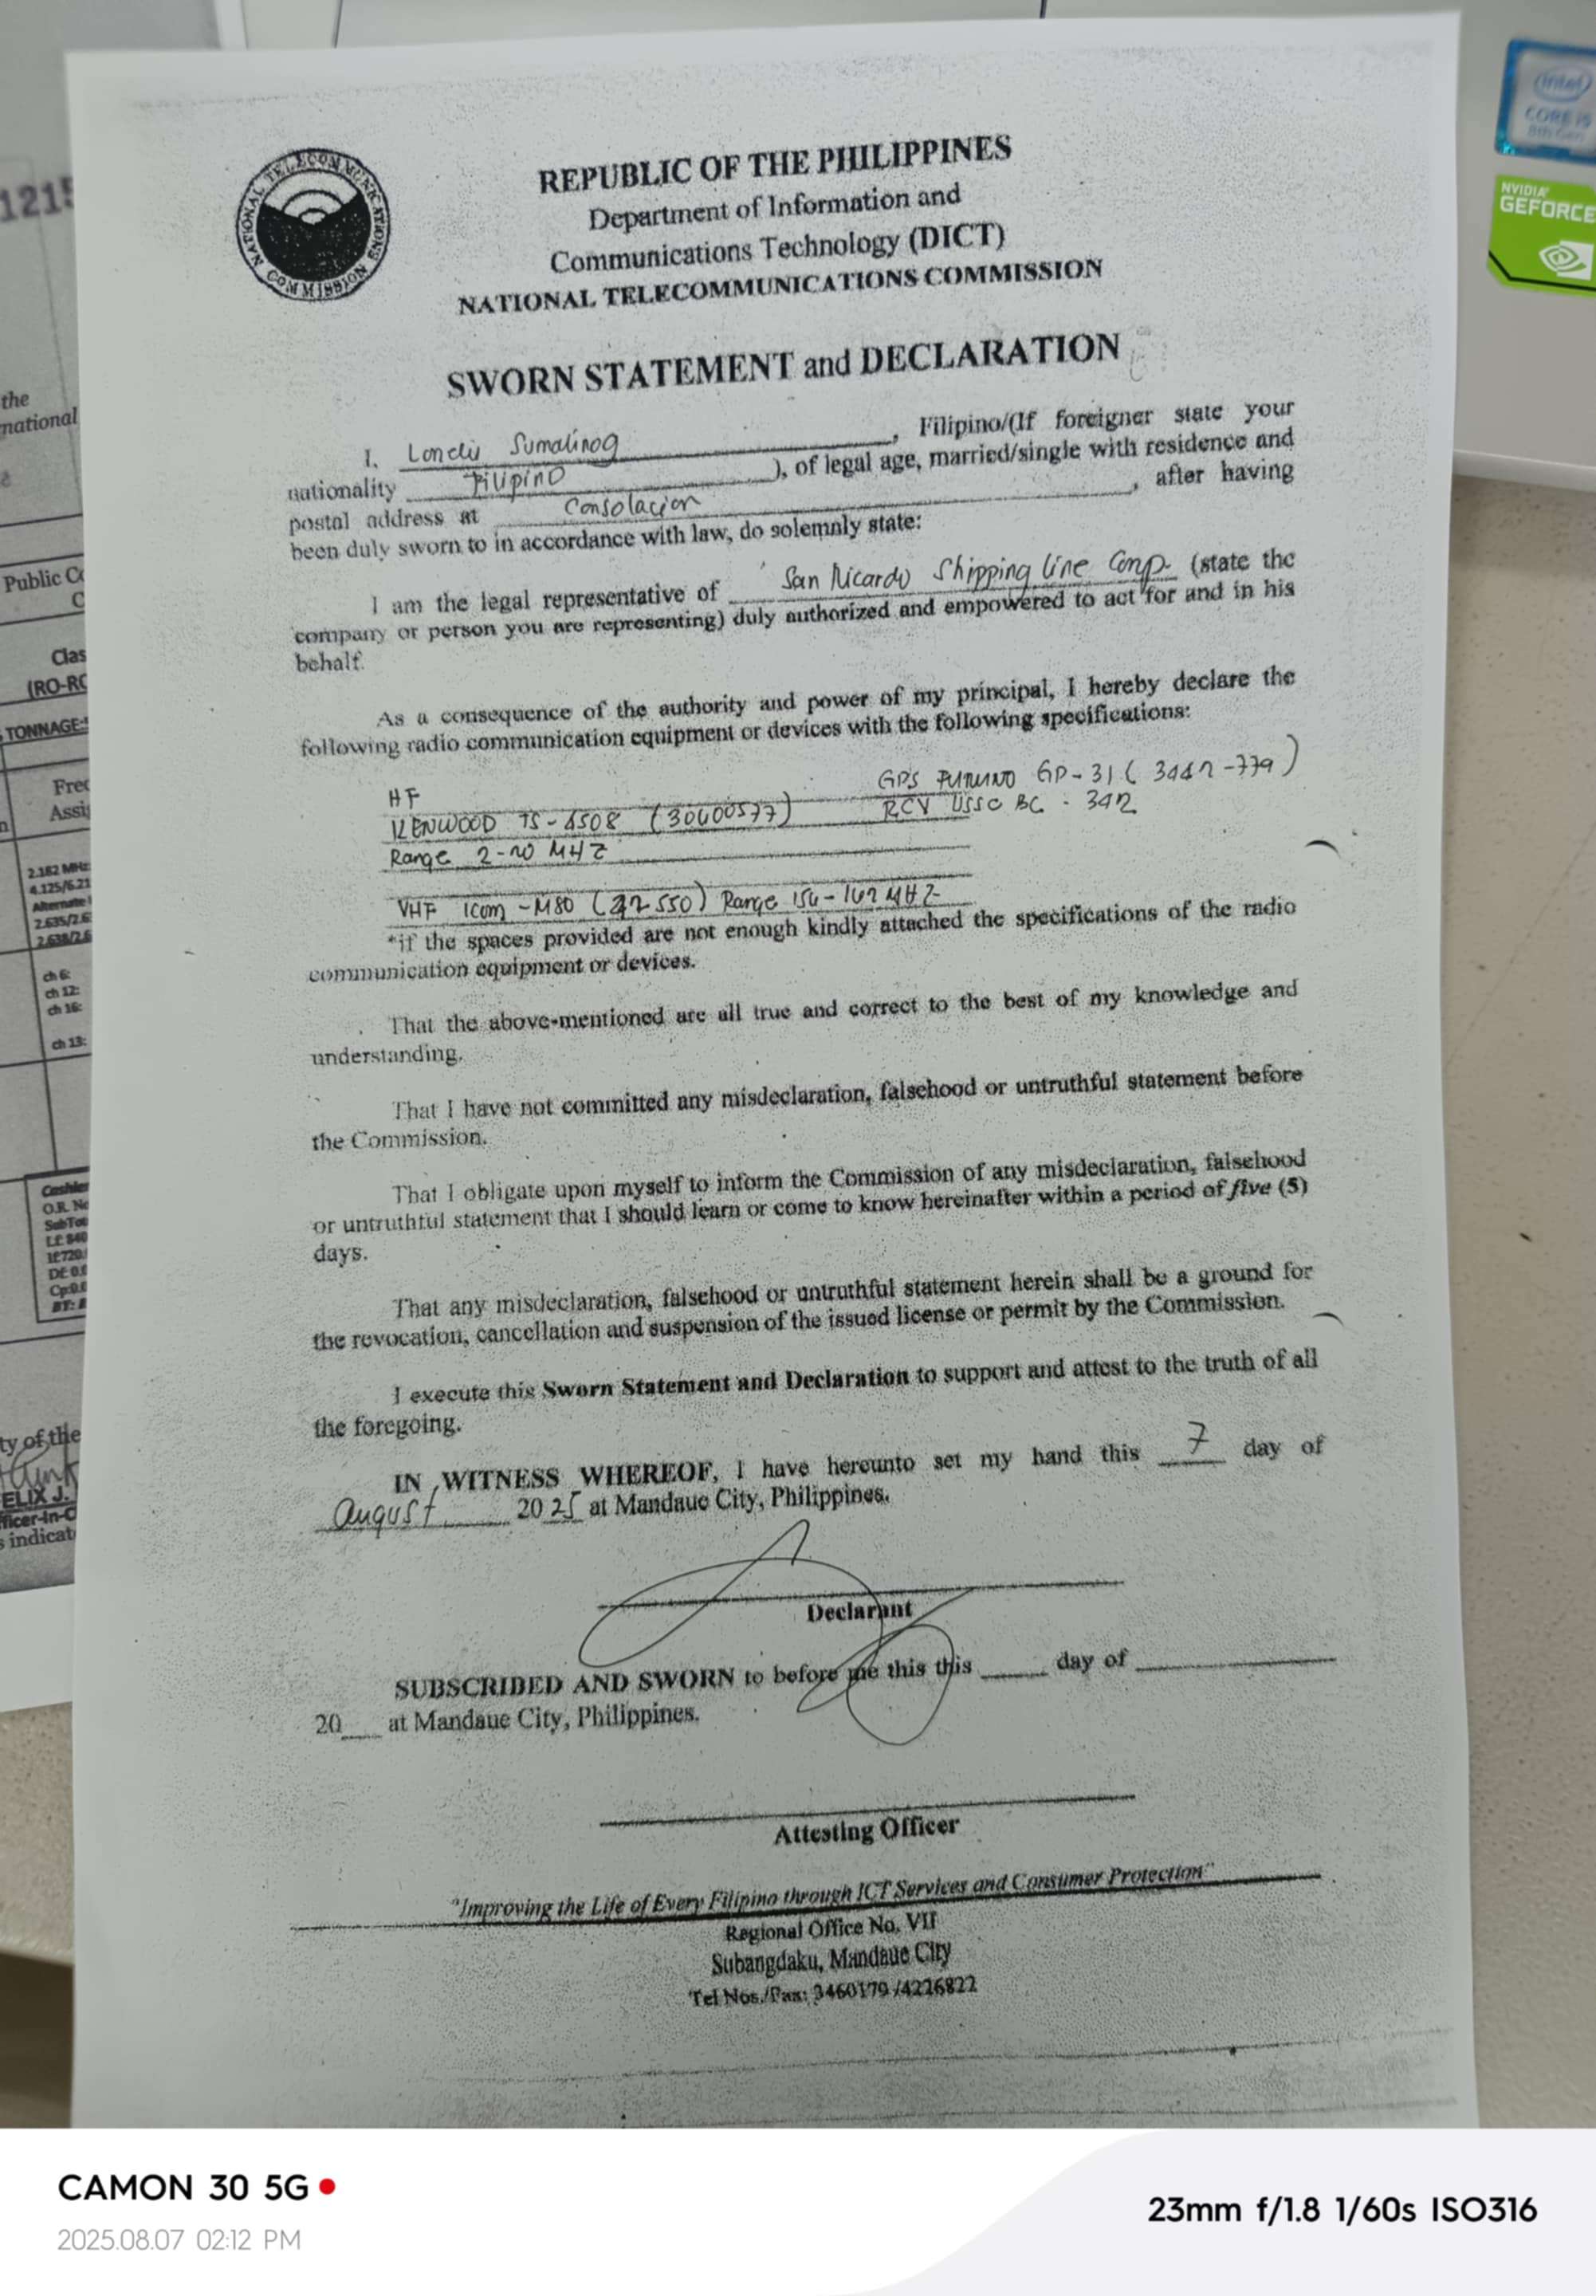 REPUBLIC OF THE PHILIPPINES
Department of Information and
Communications Technology (DICT)
NATIONAL TELECOMMUNICATIONS COMMISSION
NATIONAL TELECOMMUNICATIONS COMMISSION
SWORN STATEMENT and DECLARATION
I, Sumalinog, Filipino/(If foreigner state your
nationality Filipino), of legal age, married/single with residence and
postal address at Consolacion, after having
been duly sworn to in accordance with law, do solemnly state:
I am the legal representative of San Ricardo Shipping Line Corp. (state the
company or person you are representing) duly authorized and empowered to act for and in his
behalf.
As a consequence of the authority and power of my principal, I hereby declare the
following radio communication equipment or devices with the following specifications:
HF
KENWOOD
Range 2-20 MHZ
GPS FURUNO GP-31
RCV BC - 342
VHF Icom -M80 Range
*if the spaces provided are not enough kindly attached the specifications of the radio
communication equipment or devices.
That the above-mentioned are all true and correct to the best of my knowledge and
understanding.
That I have not committed any misdeclaration, falsehood or untruthful statement before
the Commission.
That I obligate upon myself to inform the Commission of any misdeclaration, falsehood
or untruthful statement that I should learn or come to know hereinafter within a period of five (5)
days.
That any misdeclaration, falsehood or untruthful statement herein shall be a ground for
the revocation, cancellation and suspension of the issued license or permit by the Commission.
I execute this Sworn Statement and Declaration to support and attest to the truth of all
the foregoing.
IN WITNESS WHEREOF, I have hereunto set my hand this 7 day of
August 2025 at Mandaue City, Philippines.
Declarant
SUBSCRIBED AND SWORN to before me this this ____ day of ____
20___ at Mandaue City, Philippines.
Attesting Officer
"Improving the Life of Every Filipino through ICT Services and Consumer Protection"
Regional Office No. VII
Subangdaku, Mandaue City
Tel Nos./Fax: 3460179 /4226822
1215
the
national
Public
Clas
(RO-RO
TONNAGE:
Freq
Assig
2.182 MHz
4.125/6.21
Alternate
2.635/2.6
2.638/2.6
ch 6:
ch 12:
ch 16:
ch 13:
Cashier
O.R. No
ty of the
ELIX J.
ficer-in-C
s indicat
intel
CORE i5
8th Gen
NVIDIA
GEFORCE
CAMON 30 5G
2025.08.07 02:12 PM
23mm f/1.8 1/60s ISO316